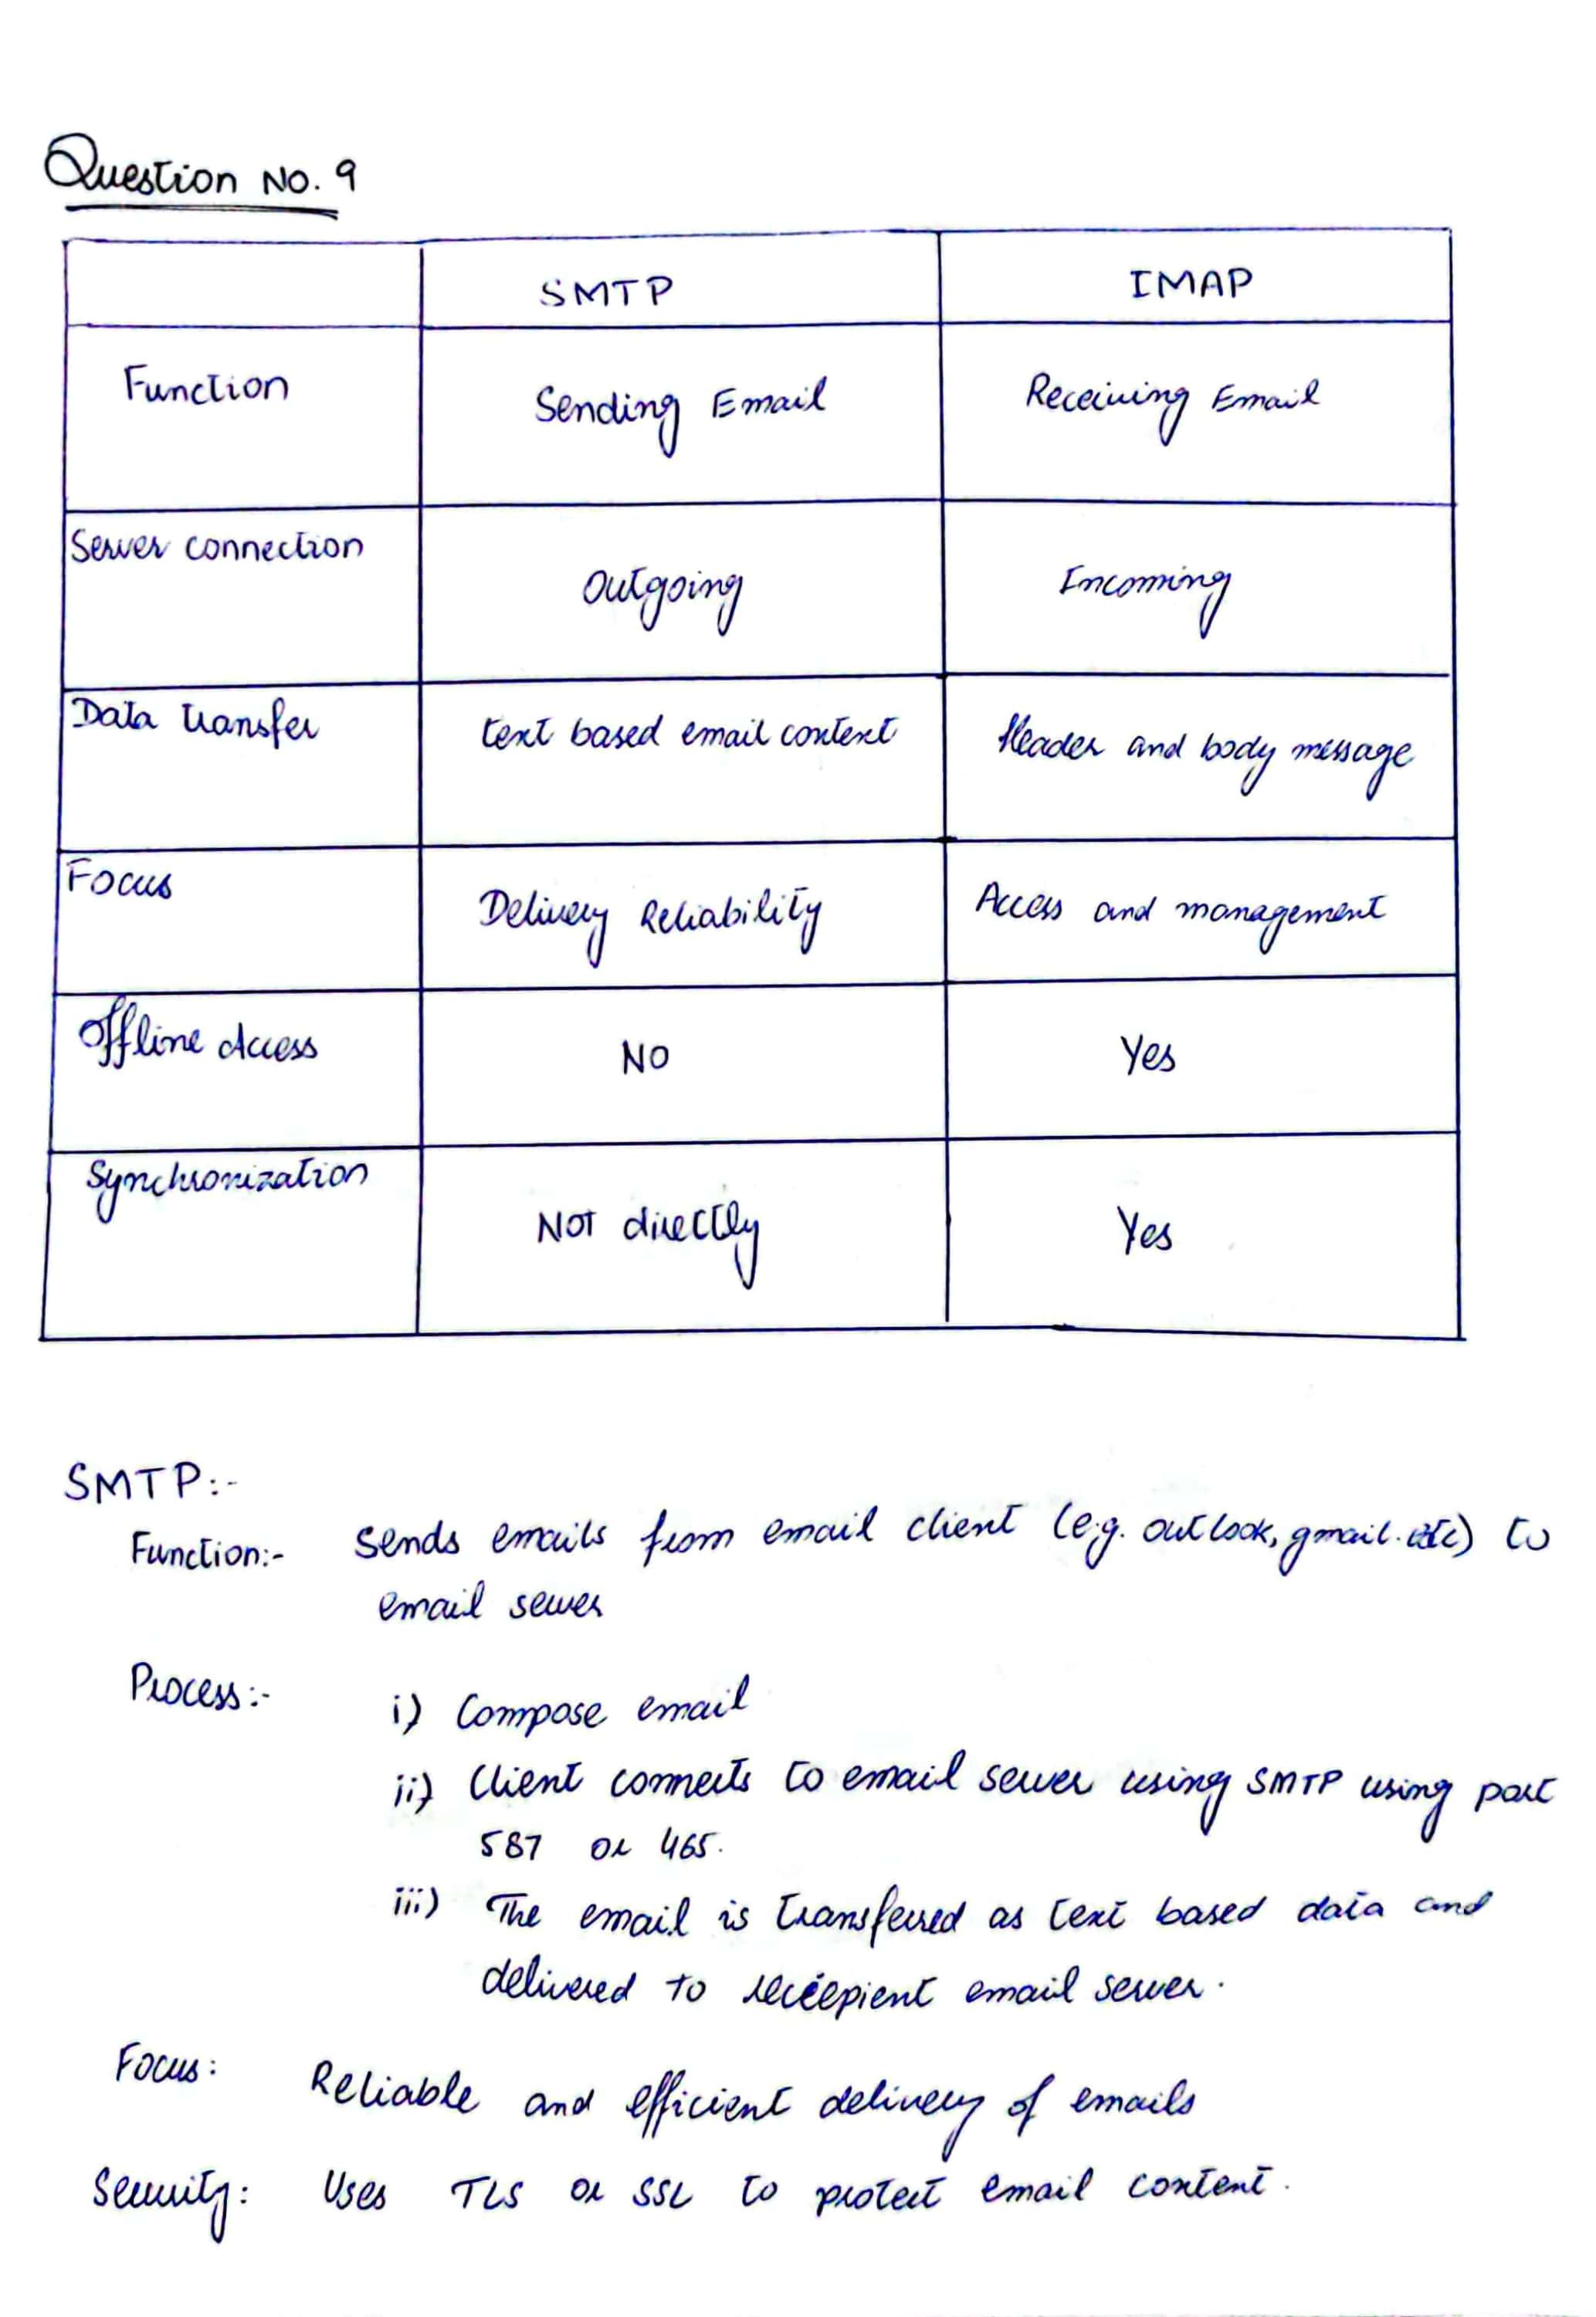 Question No. 9
SMTP IMAP
Function Sending Email Receiving Email
Server connection Outgoing Incoming
Data transfer text based email context Header and body message
Focus Delivery Reliability Access and management
Offline Access NO Yes
Synchronization NOT directly Yes
SMTP:-
Function:- Sends emails from email client (e.g. outlook, gmail. etc) to
email server
Process:-
i) Compose email
ii) Client connects to email server using SMTP using port
587 or 465.
iii) The email is transferred as text based data and
delivered to receepient email server.
Focus: Reliable and efficient delivery of emails
Security: Uses TLS or SSL to protect email content.